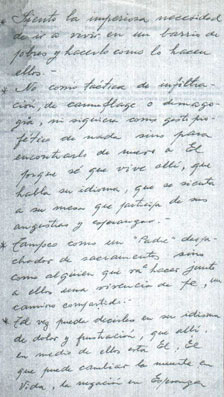 * Siento la imperiosa necesidad
de ir a vivir en un barrio de
pobres y hacerlo como lo hacen
ellos.-
* No como táctica de infiltra-
ción, de camuflage o demago-
gia, ni siquiera como gesto pro-
fético de nada sino para
encontrarlo de nuevo a El
porque sé que vive allí, que
habla su idioma, que se sienta
a su mesa que participa de sus
angustias y esperanzas.-
* Tampoco como un "Padre" despa-
chador de sacramentos sino
como alguien que va hacer junto
a ellos una vivencia de fe, un
camino compartido.-
* Tal vez pueda decirles en su idioma
de dolor y frustración, que allí
en medio de ellos está El, El
que puede cambiar la muerte en
Vida, la negación en Esperanza